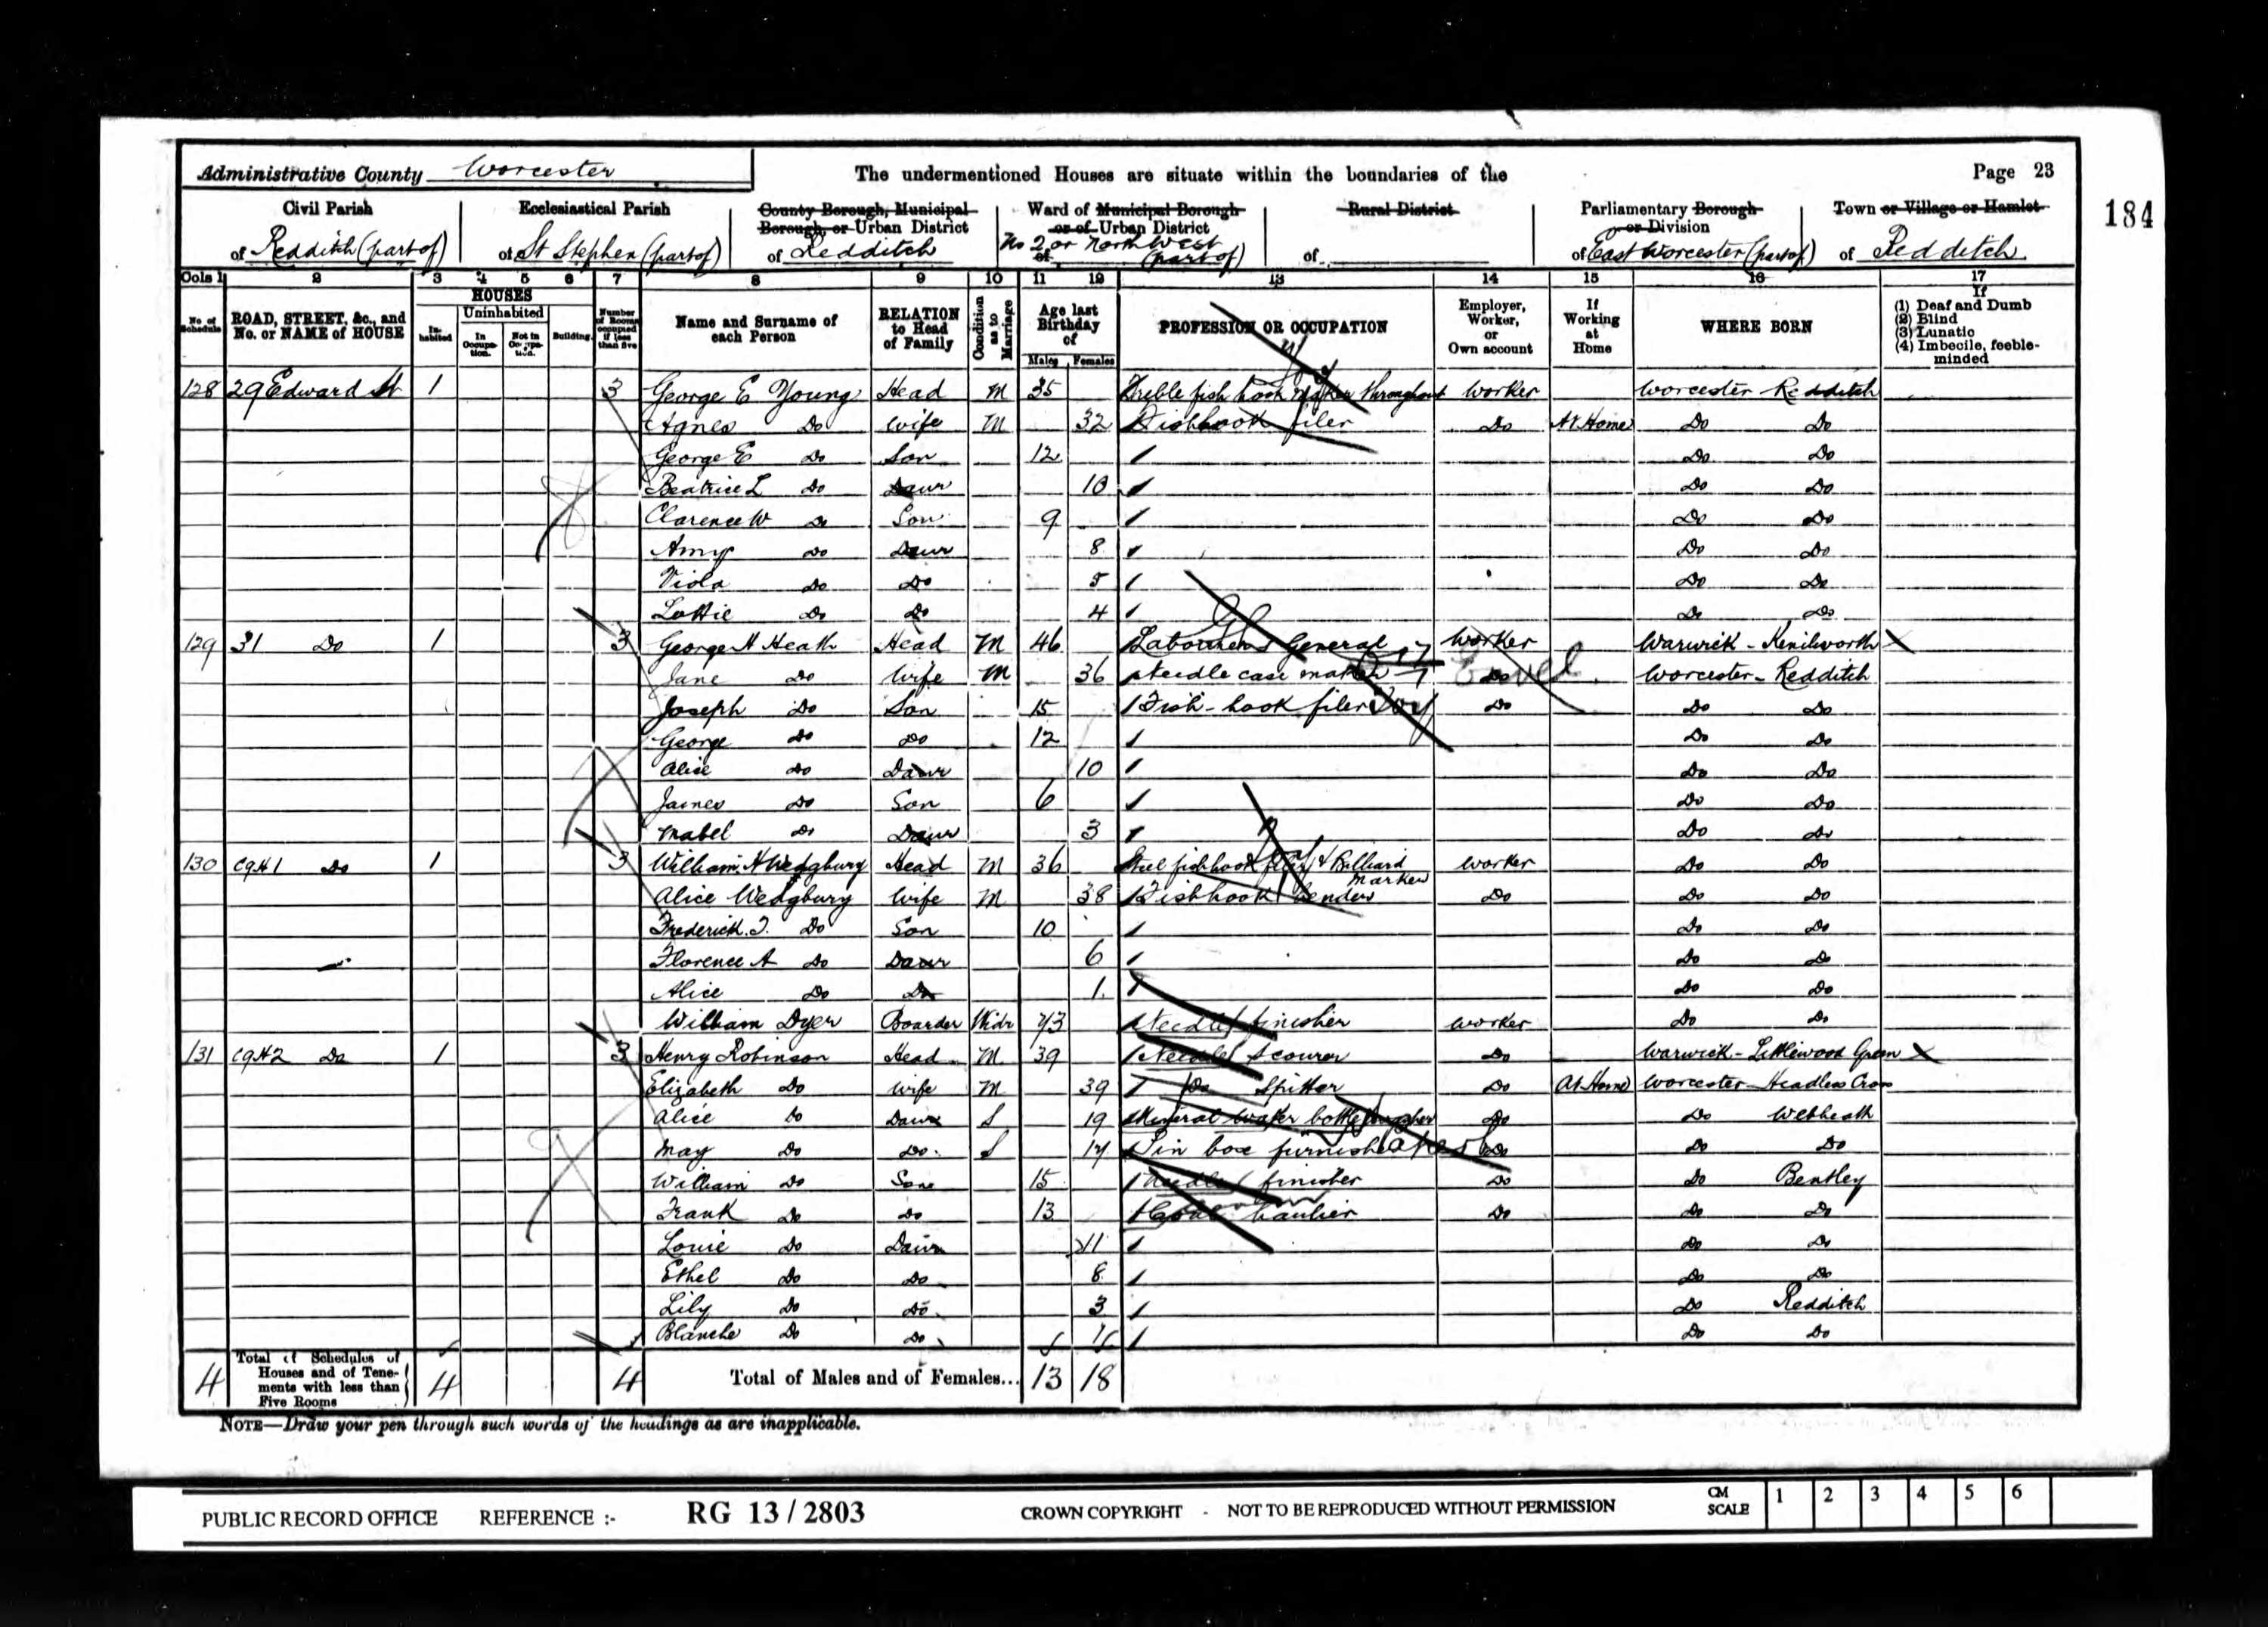 Administrative County Worcester
The undermentioned Houses are situate within the boundaries of the
Page 23
184
Civil Parish of Redditch (part of)
Ecclesiastical Parish of St Stephen (part of)
County Borough, Municipal Borough, or Urban District of Redditch
Ward of Municipal Borough or of Urban District of No 2 or North West (part of)
Rural District of
Parliamentary Borough or Division of East Worcester (part of)
Town or Village or Hamlet of Redditch
Cols 1 2 3 4 5 6 7 8 9 10 11 12 13 14 15 16 17
No. of Schedule
ROAD, STREET, &c., and No. or NAME of HOUSE
HOUSES
Inhabited
Uninhabited
In Occupation.
Not in Occupation.
Building.
Number of Rooms occupied if less than five
Name and Surname of each Person
RELATION to Head of Family
Condition as to Marriage
Age last Birthday of
Males Females
PROFESSION OR OCCUPATION
Employer, Worker, or Own account
If Working at Home
WHERE BORN
If (1) Deaf and Dumb (2) Blind (3) Lunatic (4) Imbecile, feeble-minded
128 29 Edward St 1 3 George E Young Head M 35 Treble fish hook maker throughout Worker Worcester Redditch
Agnes Do Wife M 32 Fishhook filer Do At Home Do Do
George E Do Son 12 Do Do
Beatrice L Do Daur 10 Do Do
Clarence W Do Son 9 Do Do
Amy Do Daur 8 Do Do
Viola Do Do 5 Do Do
Lottie Do Do 4 Do Do
129 31 Do 1 3 George H Heath Head M 46 General Worker Warwick - Kenilworth X
Jane Do Wife M 36 Needle case maker Do Worcester - Redditch
Joseph Do Son 15 Fish-hook filer Do Do Do
George Do Do 12 Do Do
Alice Do Daur 10 Do Do
James Do Son 6 Do Do
Mabel Do Daur 3 Do Do
130 c9H1 Do 1 3 William H Wedgbury Head M 36 fishhook & Billiard Marker Worker Do Do
Alice Wedgbury Wife M 38 Fishhook bender Do Do Do
Frederick J. Do Son 10 Do Do
Florence A Do Daur 6 Do Do
Alice Do Do 1 Do Do
William Dyer Boarder Widr 73 Needle finisher Worker Do Do
131 c9H2 Do 1 3 Henry Robinson Head M 39 Needle scourer Do Warwick - Littlewood Green X
Elizabeth Do Wife M 39 Do Spitter Do At Home Worcester Headless Cross
Alice Do Daur S 19 Mineral water bottle washer Do Do Webheath
May Do Do S 17 Tin box furnisher Do Do Do
William Do Son 15 Needle finisher Do Do Bentley
Frank Do Do 13 Coal haulier Do Do Do
Louie Do Daur 11 Do Do
Ethel Do Do 8 Do Do
Lily Do Do 3 Do Redditch
Blanche Do Do Do Do
4 Total of Schedules of Houses and of Tenements with less than Five Rooms 4 4 Total of Males and of Females... 13 18
NOTE—Draw your pen through such words of the headings as are inapplicable.
PUBLIC RECORD OFFICE REFERENCE :- RG 13 / 2803 CROWN COPYRIGHT - NOT TO BE REPRODUCED WITHOUT PERMISSION CM SCALE 1 2 3 4 5 6